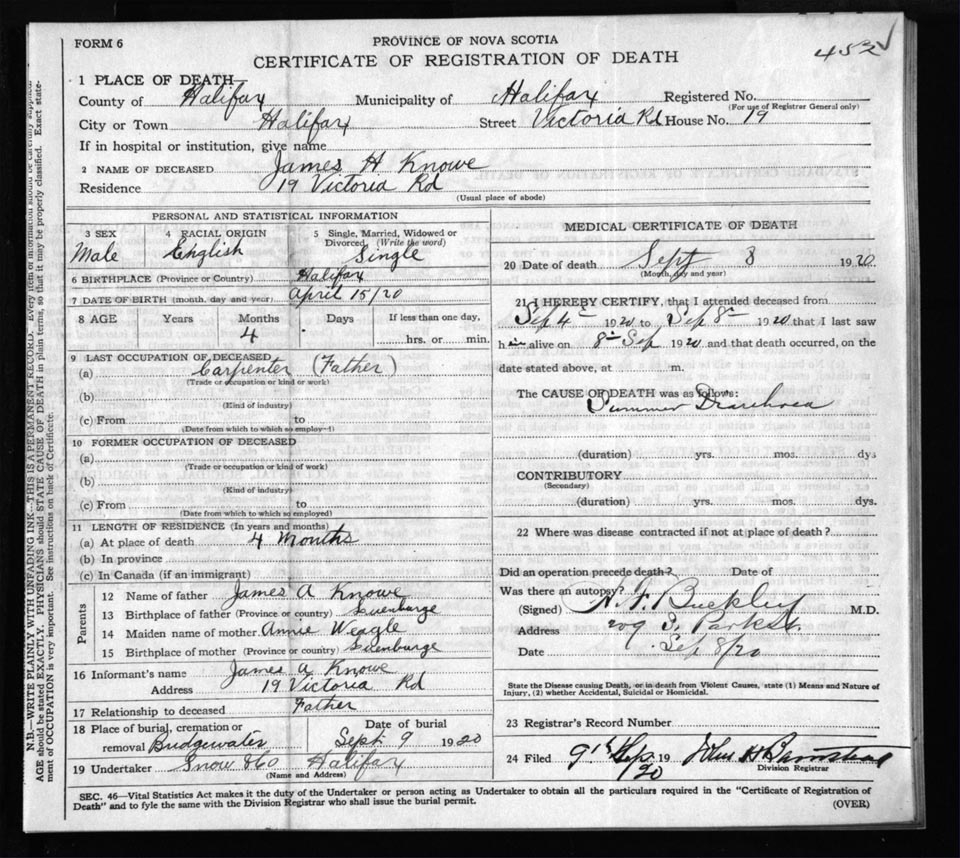 FORM 6
PROVINCE OF NOVA SCOTIA
452
CERTIFICATE OF REGISTRATION OF DEATH
1 PLACE OF DEATH
County of Halifax Municipality of Halifax Registered No.
(For use of Registrar General only)
City or Town Halifax Street Victoria Rd House No. 19
If in hospital or institution, give name
2 NAME OF DECEASED James H Knowe
Residence 19 Victoria Rd
(Usual place of abode)
PERSONAL AND STATISTICAL INFORMATION
3 SEX Male
4 RACIAL ORIGIN English
5 Single, Married, Widowed or Divorced (Write the word) Single
6 BIRTHPLACE (Province or Country) Halifax
7 DATE OF BIRTH (month, day and year) April 15/20
8 AGE Years Months Days If less than one day,
4 hrs. or min.
9 LAST OCCUPATION OF DECEASED
(a) Carpenter (Father)
(Trade or occupation or kind or work)
(b)
(Kind of industry)
(c) From to
(Date from which to which so employed)
10 FORMER OCCUPATION OF DECEASED
(a)
(Trade or occupation or kind of work)
(b)
(Kind of industry)
(c) From to
(Date from which to which so employed)
11 LENGTH OF RESIDENCE (In years and months)
(a) At place of death 4 Months
(b) In province
(c) In Canada (if an immigrant)
Parents
12 Name of father James A Knowe
13 Birthplace of father (Province or country) Luenburge
14 Maiden name of mother Annie Weagle
15 Birthplace of mother (Province or country) Luenburge
16 Informant's name James A Knowe
Address 19 Victoria Rd
17 Relationship to deceased Father
18 Place of burial, cremation or Date of burial
removal Bridgewater Sept 9 1920
19 Undertaker Snow &Co Halifax
(Name and Address)
MEDICAL CERTIFICATE OF DEATH
20 Date of death Sept 8 1920
(Month, day and year)
21 I HEREBY CERTIFY, that I attended deceased from
Sep 4 1920 to Sep 8 1920 that I last saw
him alive on 8 Sep 1920 and that death occurred, on the
date stated above, at m.
The CAUSE OF DEATH was as follows:
Summer Diarrhoea
(duration) yrs. mos. dys
CONTRIBUTORY
(Secondary)
(duration) yrs. mos. dys.
22 Where was disease contracted if not at place of death?
Did an operation precede death? Date of
Was there an autopsy?
(Signed) Buckley M.D.
Address 209 S. Park St.
Date Sep 8/20
State the Disease causing Death, or in death from Violent Causes, state (1) Means and Nature of
Injury, (2) whether Accidental, Suicidal or Homicidal.
23 Registrar's Record Number
24 Filed 9th Sep/20 19 John H Barnstead
Division Registrar
SEC. 46—Vital Statistics Act makes it the duty of the Undertaker or person acting as Undertaker to obtain all the particulars required in the "Certificate of Registration of
Death" and to fyle the same with the Division Registrar who shall issue the burial permit.
(OVER)
N.B.—WRITE PLAINLY WITH UNFADING INK—THIS IS A PERMANENT RECORD. Every item of information should be carefully supplied.
AGE should be stated EXACTLY. PHYSICIANS should STATE CAUSE OF DEATH in plain terms, so that it may be properly classified. Exact state-
ment of OCCUPATION is very important. See instructions on back of Certificate.